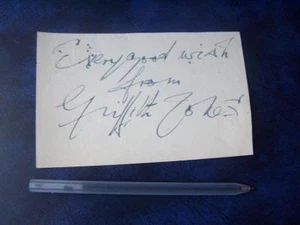 Every good wish
from
Griffith Jones